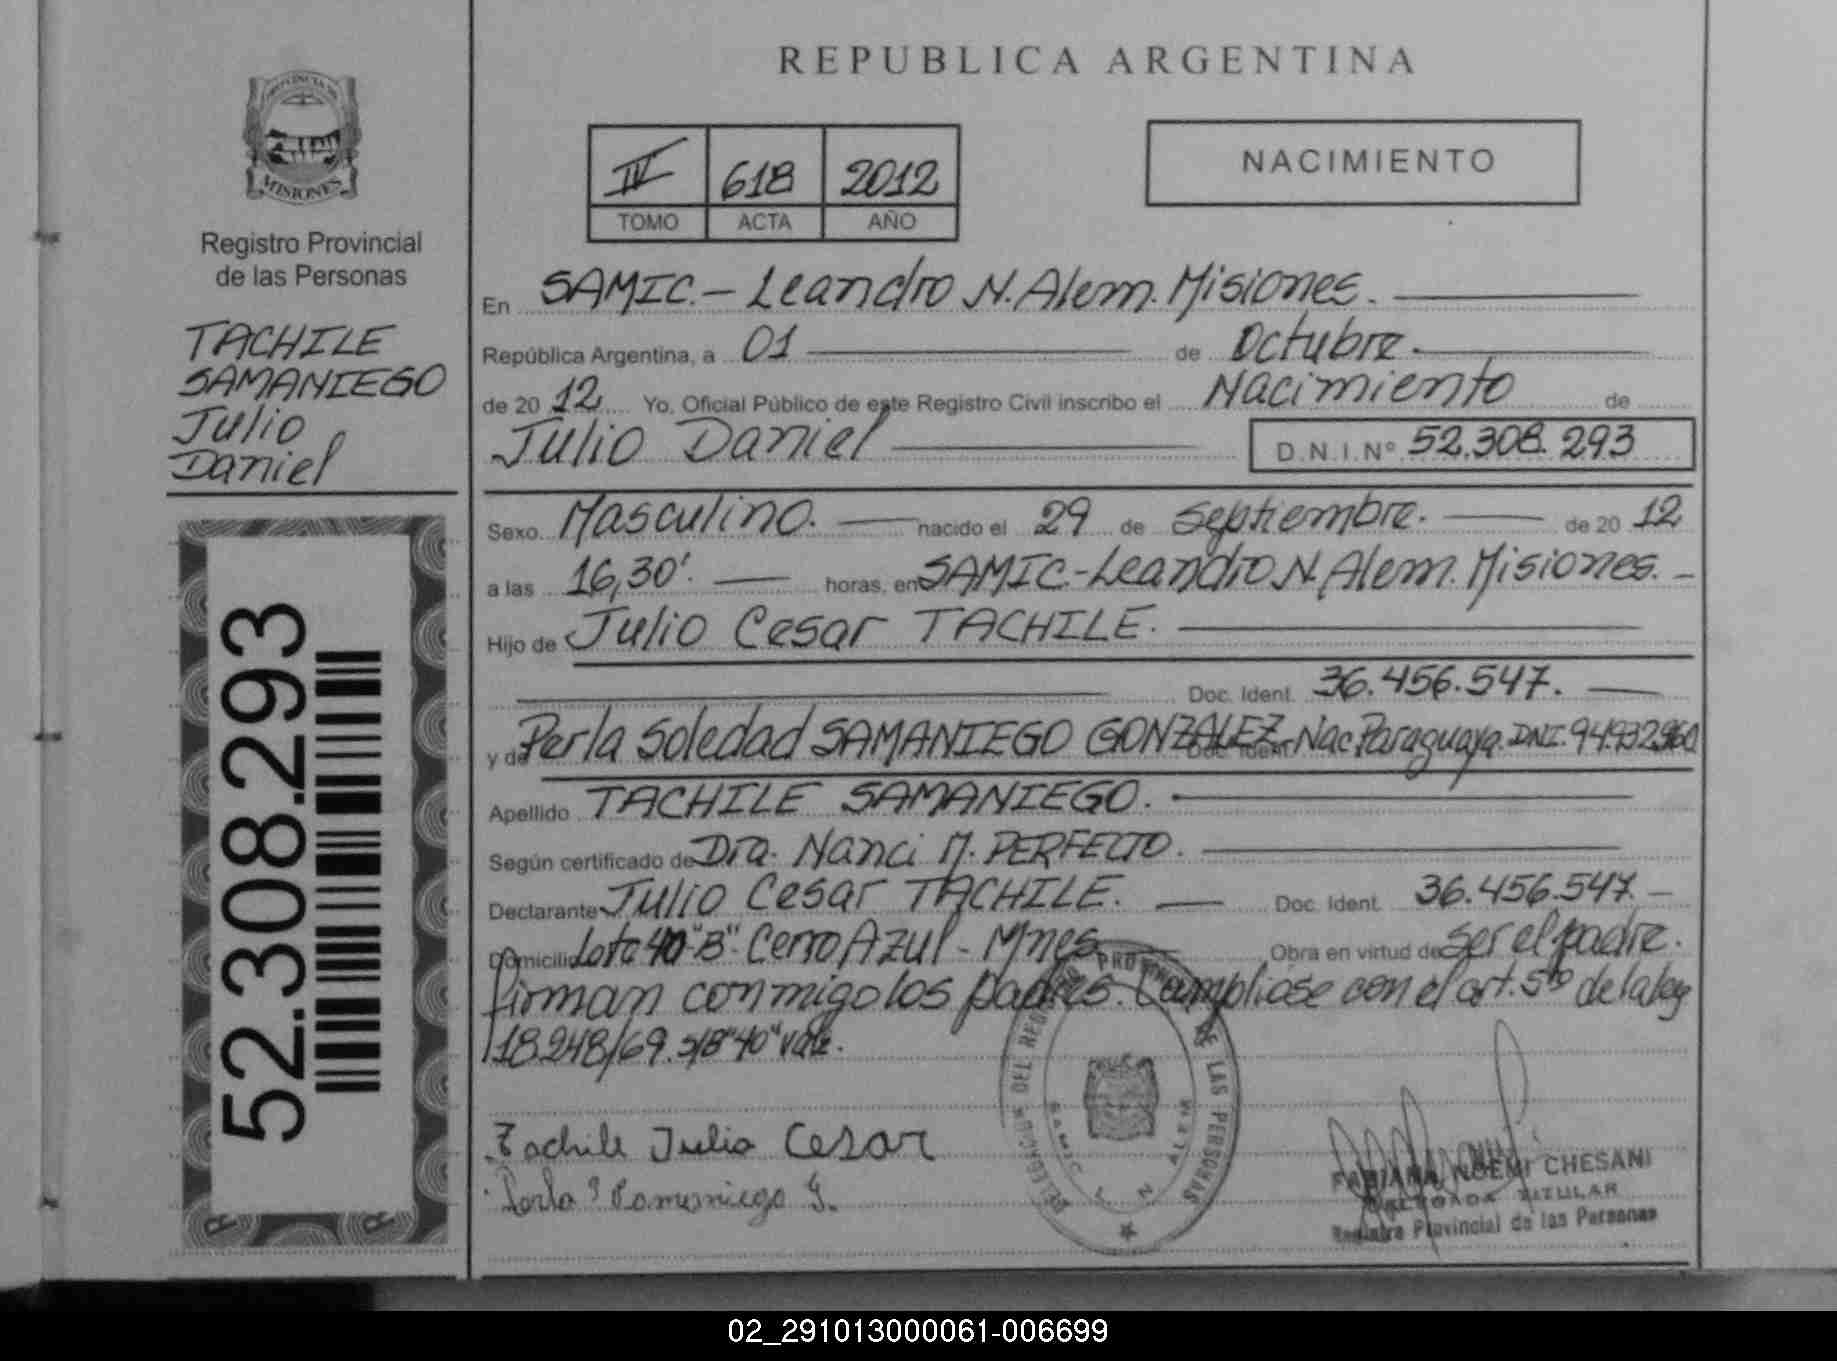 REPUBLICA ARGENTINA
PROVINCIA DE
MISIONES
Registro Provincial
de las Personas
TACHILE
SAMANIEGO
Julio
Daniel
52.308.293
IV 618 2012
TOMO ACTA AÑO
NACIMIENTO
En SAMIC.- Leandro N. Alem. Misiones.
República Argentina, a 01 de Octubre.
de 2012 Yo, Oficial Público de este Registro Civil inscribo el Nacimiento de
Julio Daniel D.N.I.Nº 52.308.293
Sexo Masculino. nacido el 29 de Septiembre. de 2012
a las 16,30'. horas, en SAMIC.-Leandro N. Alem. Misiones.-
Hijo de Julio Cesar TACHILE.
Doc. Ident. 36.456.547.
y de Perla Soledad SAMANIEGO GONZALEZ Doc. Ident. Nac. Paraguaya. DNI. 94.932.960
Apellido TACHILE SAMANIEGO.
Según certificado de Dra. Nanci M. PERFECTO.
Declarante Julio Cesar TACHILE. Doc. Ident. 36.456.547.-
Domicilio Lote 40 "B". Cerro Azul - Mnes. Obra en virtud de ser el padre.
firman conmigo los padres. Cumpliose con el art. 5to de la ley
18.248/69. s/B "40" vale.
Tachile Julio Cesar
Perla S Samaniego G.
DEL REGISTRO PROVINCIAL DE LAS PERSONAS
SAMIC L N ALEM
FABIANA NOEMI CHESANI
DELEGADA TITULAR
Registro Provincial de las Personas
02_291013000061-006699